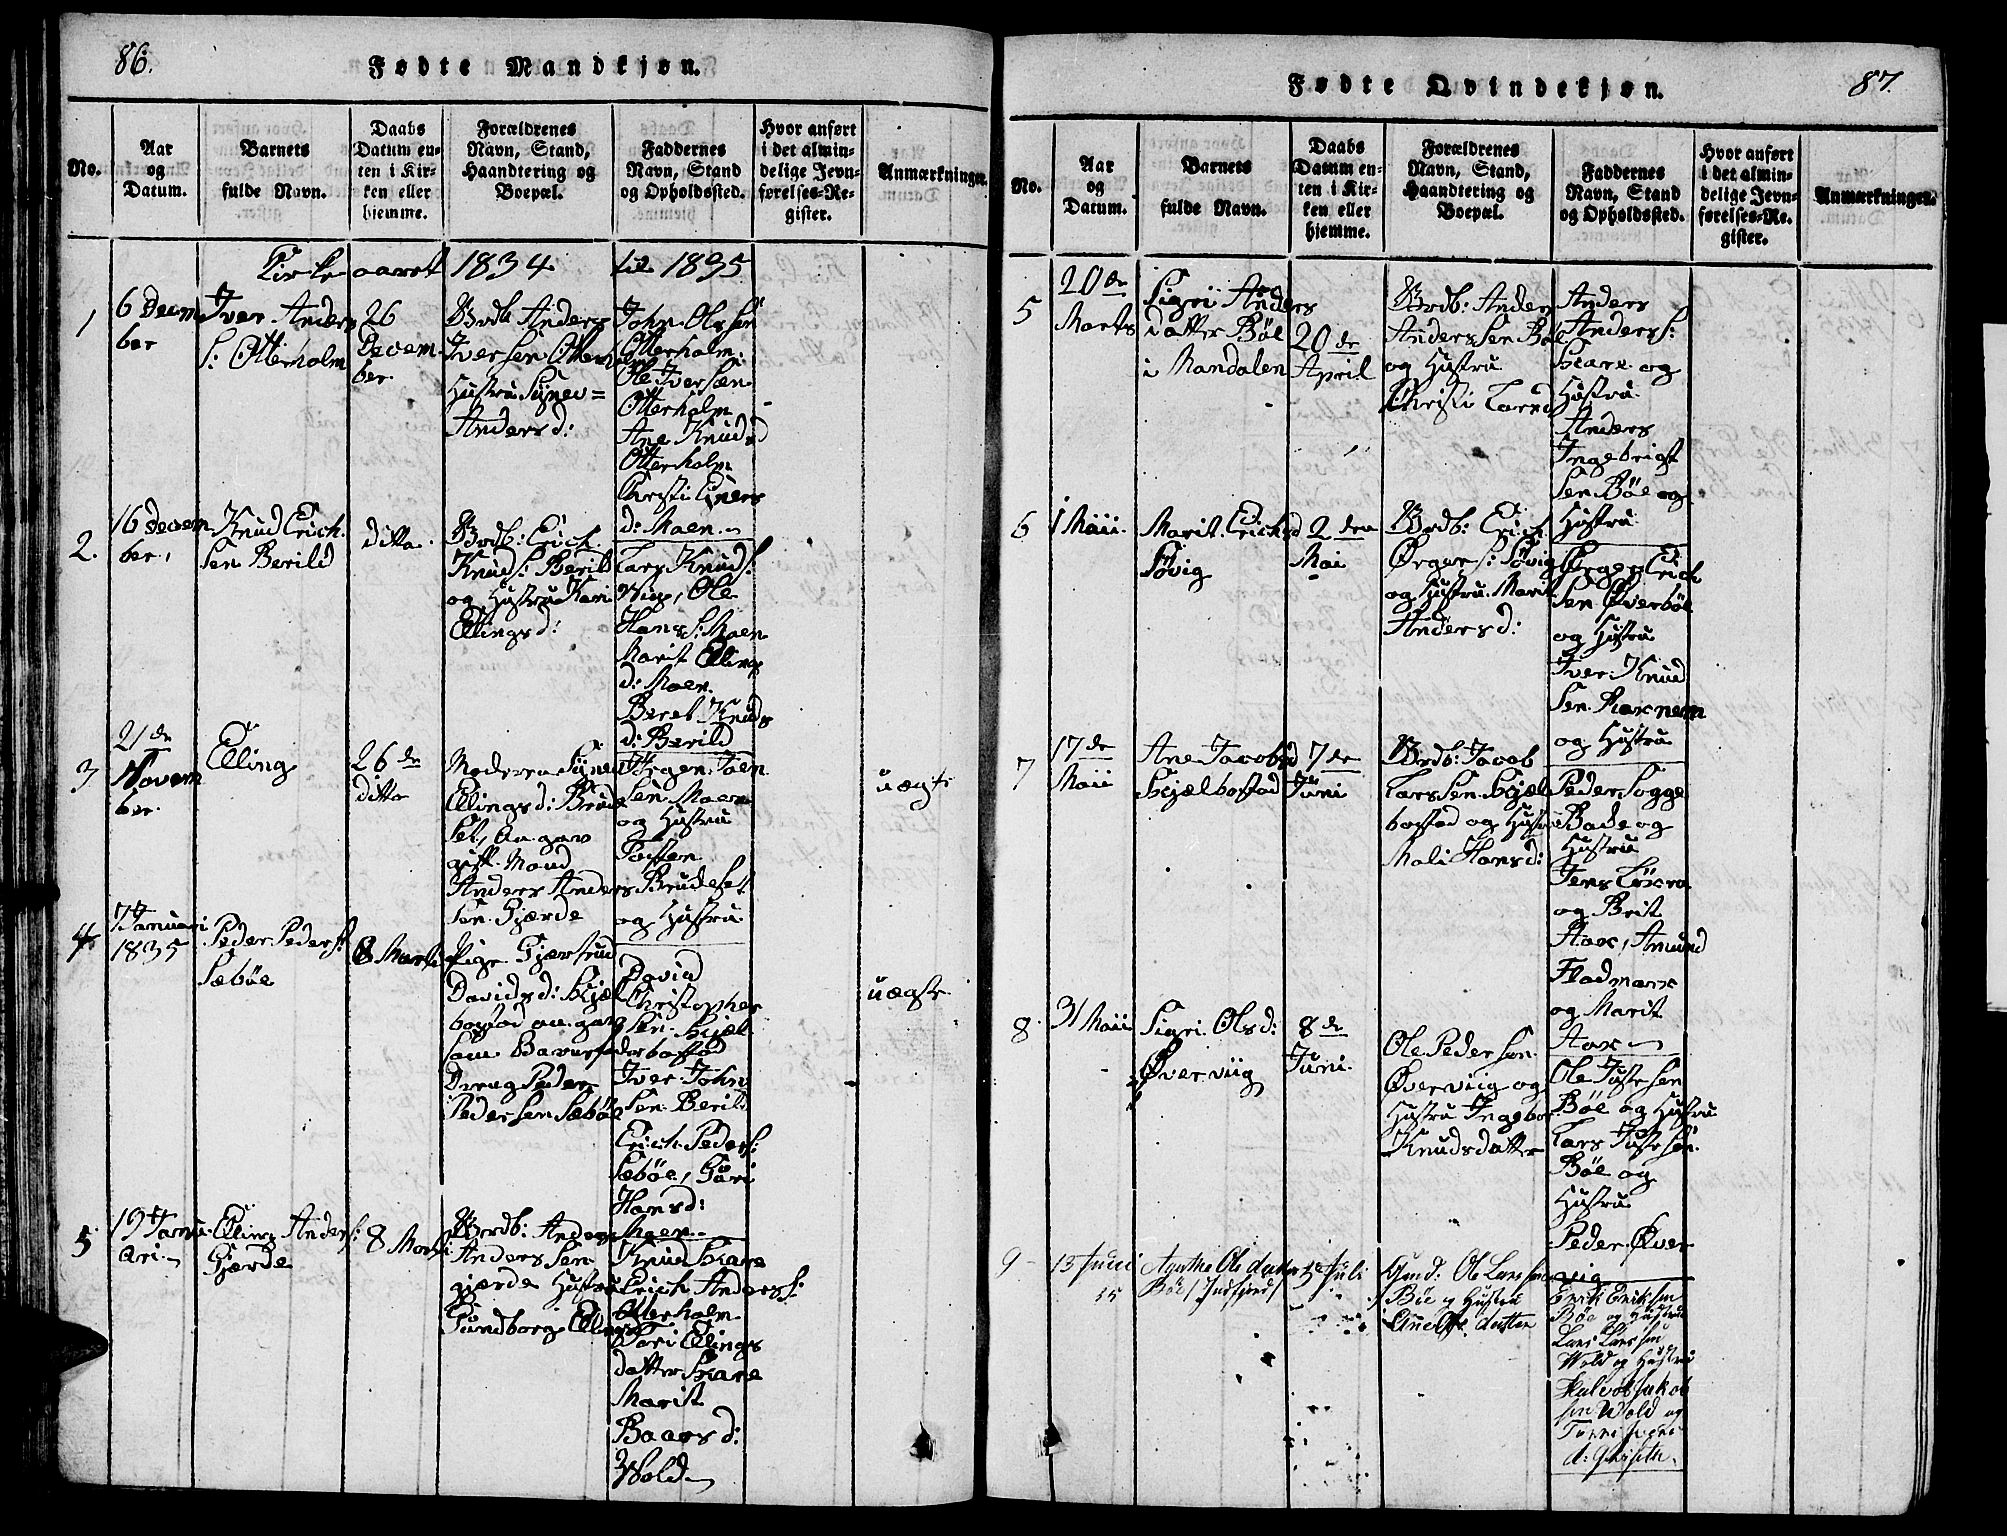 86.
Fødte Mandkjøn.
No.
Aar
og
Datum.
Barnets
fulde Navn.
Daabs
Datum en-
ten i Kir-
ken eller
hjemme.
Forældrenes
Navn, Stand,
Haandtering og
Boepæl.
Faddernes
Navn, Stand
og Opholdssted.
Hvor anført
i det almin-
delige Jevn-
førelses-Re-
gister.
Anmærkninger.
Kirke aaret 1834 til 1835
1
6 Decem
ber
Iver Anders
S: Otterholm
26
Decem-
ber.
Brdb: Anders
Iversen Otterh
Hustru Synev=
Andersd:
John Olssen
Otterholm:
Ole Iversen
Otterholm
Ane Knudsd
Otterholm
Christi Einers
d: Moen
2.
16 Decem
ber,
Knud Erich
sen Berild
ditto.
Brdb: Erich
Knuds: Berild
og Hustru Kari
Ellingsd:
Lars Knuds:
Viig, Ole
Hanss: Moen
Marit Ellings
d: Moen.
Beret Knuds
d: Berild
3
21de
Novem
ber.
Elling
26de
ditto
Moderen Synev
Ellingsd: Brude
set, an gav
gift Mand
Anders Anders
sen Gjerde
Jørgen Joen
sen Moen
og Hustru
Torsten
Brudeset
og Hustru
uægte
4
7 Januari
1835
Peder Peders:
Sæbøe
8 Marti
Pige Gjertrud
Davidsd: Skjel
bostad an gav
som Barnefader
Dreng Peder
Pedersen Sæbøe
David
Christopher
sen Skjel
bostad
Iver John
sen Berild
Erich Peders:
Sæbøe, Guri
Hansd:
Moen
uægte
5
19 Janu
ari
Elling Anders:
Gjerde
8 Marti
Brdb: Anders
Anderssen
gjerde Hustru
Gundborg Ellings
Knud Skare
Erich Anderss:
Otterholm
Kari Ellings
datter Skare
Marit
Baarsd:
Wold
87.
Fødte Qvindekjøn.
No.
Aar
og
Datum.
Barnets
fulde Navn.
Daabs
Datum en-
ten i Kir-
ken eller
hjemme.
Forældrenes
Navn, Stand,
Haandtering og
Boepæl.
Faddernes
Navn, Stand
og Opholdssted.
Hvor anført
i det almin-
delige Jevn-
førelses-Re-
gister.
Anmærkninger.
5
20de
Marts
Sigri Anders
datter Bøe
i Mandalen
20de
April
Brdb: Anders
Anderssen Bøe
og Hustru
Christi Larsd
Anders
Anderss:
Skare og
Hustru
Anders
Ingebrigt
sen Bøe og
Hustru
6
1 Maii
Marit Erichsd
Søvig
2den
Mai
Brdb: Erich
Ørgers: Søvig
og Hustru Marit
Andersd:
Ørger Erich
sen Øverbøe
og Hustru
Iver Knud
sen
og Hustru
7
17de
Maii
Ane Jacobsd
Skjælbostad
7de
Juni
Brdb: Jacob
Larssen Skjæl
bostad og Hustru
Mali Hansd:
Peder Sogge
Bade og
Hustru
Jens
og Brit
Aax, Amund
Fladmark
og Marit
Aax
8.
31 Maii
Sigri Olsd:
Øverviig
8de
Juni.
Ole Pedersen
Øverviig og
Hustru Ingebor
Knudsdatter
Ole Justesen
Bøe og Hustru
Lars Justesen
Bøe og
Hustru
Peder Øver
vig
9
13 Juni
35
Agathe Ole datter
Bøe / Indfjord/
5 Juli
Gmd: Ole Larssen
Bøe og Hustru
Ane Ols datter
Erik Eriksen
Bøe og Hustru
Lars Larssen
Wold og Hustru
Halvor Jakob
sen Wold og